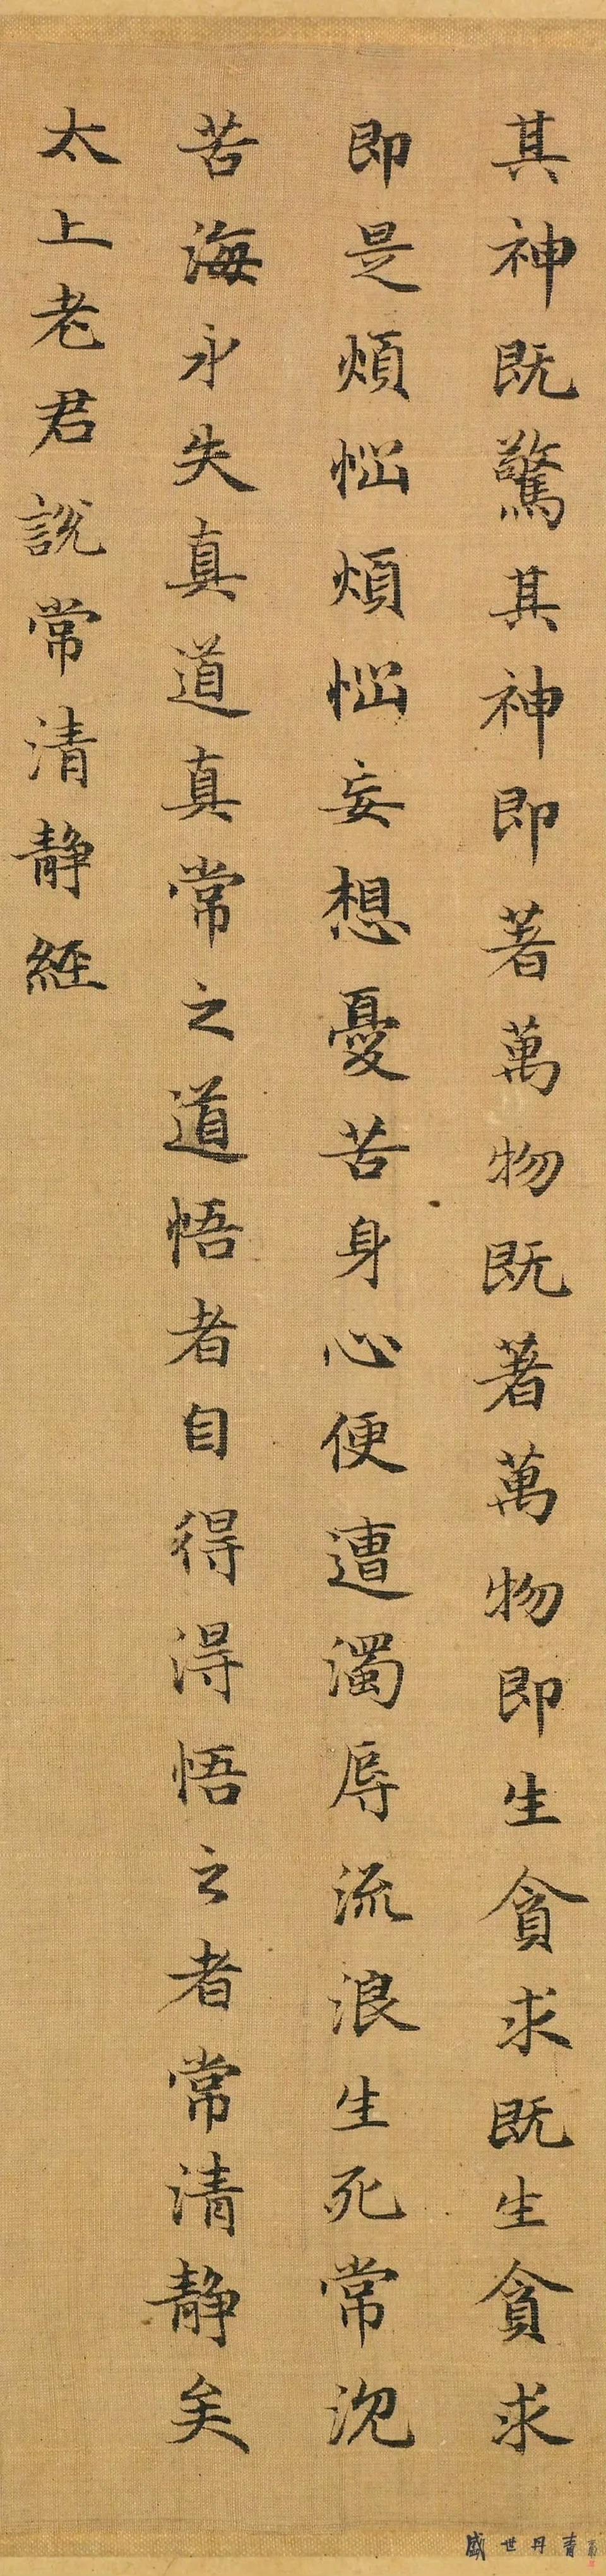 其神既驚其神即著萬物既著萬物即生貪求既生貪求
即是煩惱煩惱妄想憂苦身心便遭濁辱流浪生死常沉
苦海永失真道真常之道悟者自得得悟之者常清静矣
太上老君説常清静經
盛世丹青